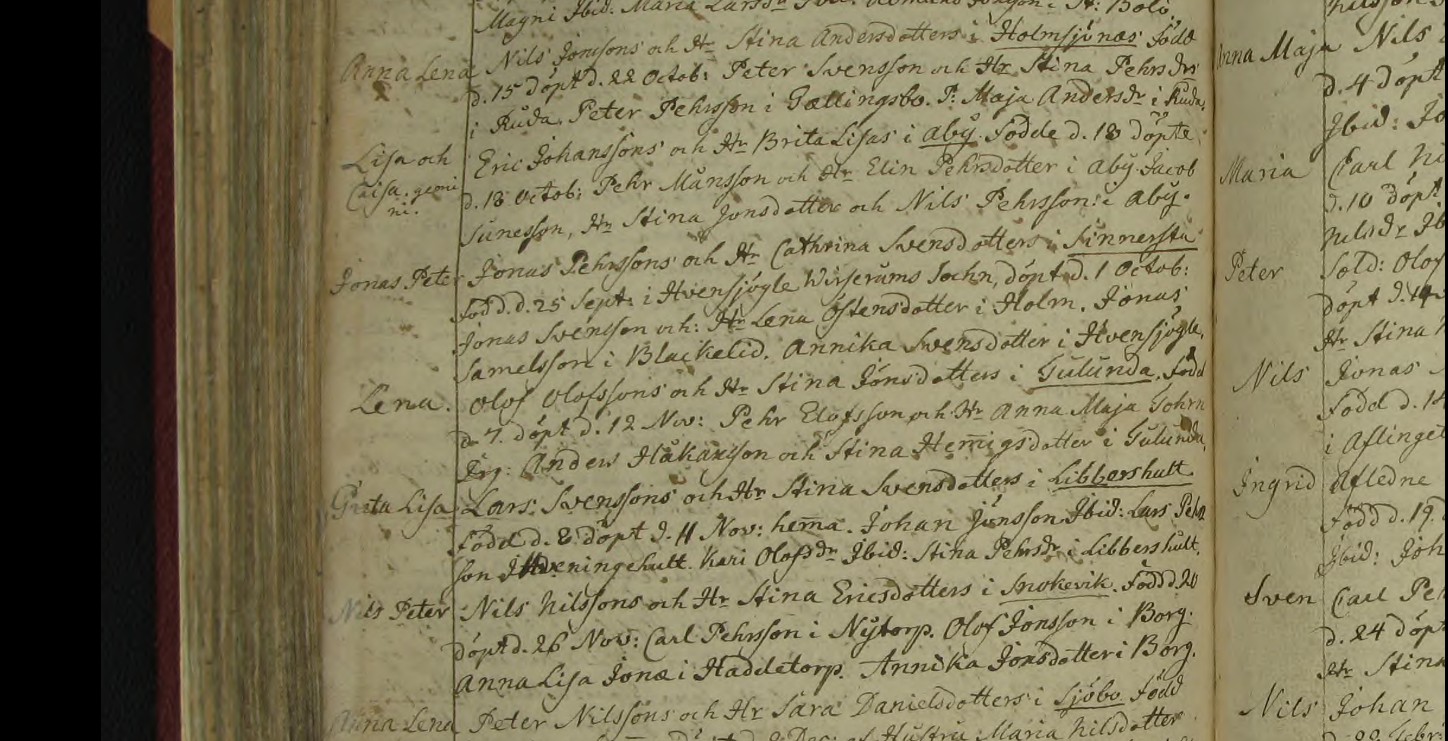 Magni Ibid: Maria Larss
Anna Lena Nils Jonssons och Hr Stina Andersdotters i Holmsjönäs född
d. 15 döpt d. 22 Octob: Peter Svensson och Hr Stina Pehrsdrs
i Ruda. Peter Pehrsson i Gällingsbo. P: Maja Andersdr i Ruda.
Lisa och Caisa. gemi ni. Eric Johanssons och Hr Brita Lisas i Åby. Födde d. 18 döpte
d. 18 Octob: Pehr Månsson och Hr Elin Pehrsdotter i Åby. Jacob
Sunesson, Hr Stina Jonsdotter och Nils Pehrsson i Åby.
Jonas Peter Jonas Pehrssons och Hr Cathrina Svensdotters i Sinnersta
född d. 25 Sept: i Hvensjögle Wirserums Sochn, döpt d. 1 Octob:
Jonas Svensson och: Hr Lena Östensdotter i Holm. Jonas
Samelsson i Blackelid. Annika Svensdotter i Hvensjögle.
Lena. Olof Olofssons och Hr Stina Jonsdotters i Gulunda. född
d. 7. döpt d. 12 Nov: Pehr Elofsson och Hr Anna Maja
Anders Håkansson och Stina Hemigsdotter i Gulunda.
Greta Lisa Lars. Svenssons och Hr Stina Svensdotters i Libbershult
född d. 8 döpt d. 11 Nov: hema. Johan Jönsson Ibid: Lars Pehrs
son i Hveningehult. Kari Olofsdr Ibid: Stina Pehrsdr i Libbershult.
Nils Peter Nils Nilssons och Hr Stina Ericsdotters i Snokevik. Född d. 20
döpt d. 26 Nov: Carl Pehrsson i Nytorp. Olof Jonsson i Borg.
Anna Lisa Jonæ i Haddetorp. Annika Jonsdotter i Borg.
Anna Lena Peter Nilssons och Hr Sara Danielsdotters i Sjöbo. Född
Hustru Maria Nilsdotter
Anna Maja Nils
d. 4 döpt
Ibid: Jo
Maria Carl Ni
d. 10 döpt
Nilsdr Ib
Peter Sold: Olof
döpt d. 14
Hr Stina
Nils Jonas
född d. 14
i Aflinget
Ingrid Afledne
född d. 19.
Ibid: Joh
Sven Carl Peh
d. 24 döpt
Hr Stina
Nils Johan
d. 22 Febr: